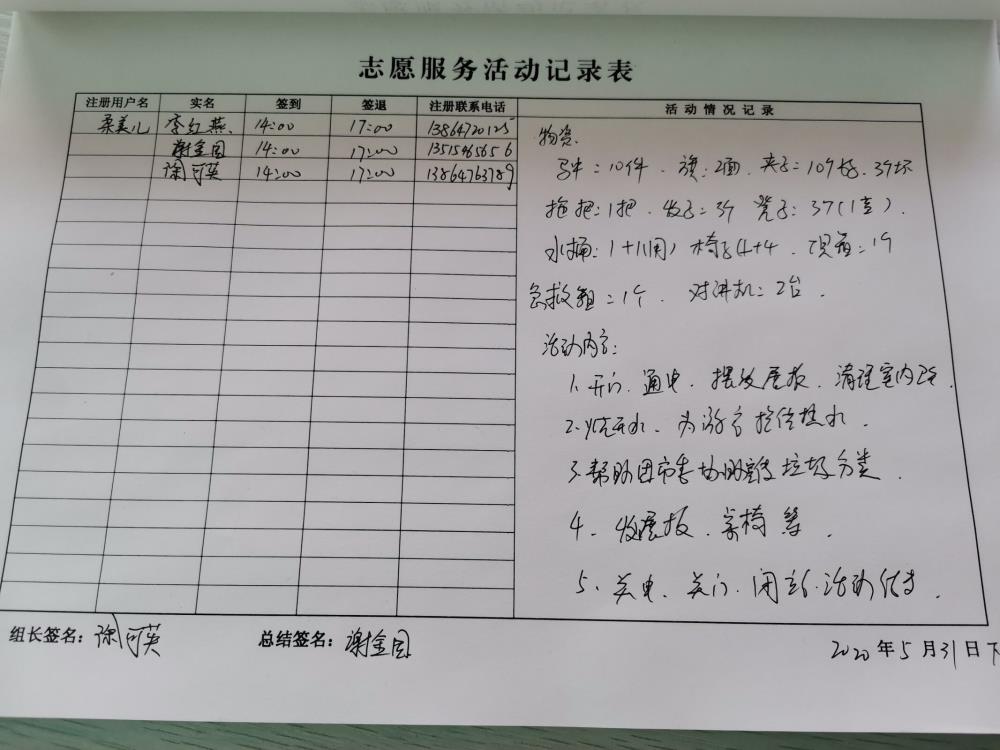 志愿服务活动记录表
注册用户名 实名 签到 签退 注册联系电话 活动情况记录
柔美儿 李红燕 14:00 17:00 13864720125
谢金园 14:00 17:00 13515465656
徐可英 14:00 17:00 13864763789
物资:
马甲:10件、旗:2面、夹子:10个好,3个坏
拖把:1把、 凳子:37(1声).
水桶:1+1(闲) 椅子4+4、 1个
急救箱:1个、 对讲机:2台.
活动内容:
1、开门、通电、摆放展板、清理室内卫生.
2、烧开水、为游客提供热水.
3、帮助 垃圾分类.
4、收展板、桌椅等.
5、关电、关门、闭站.活动结束.
组长签名:徐可英 总结签名:谢金园 2020年5月31日下